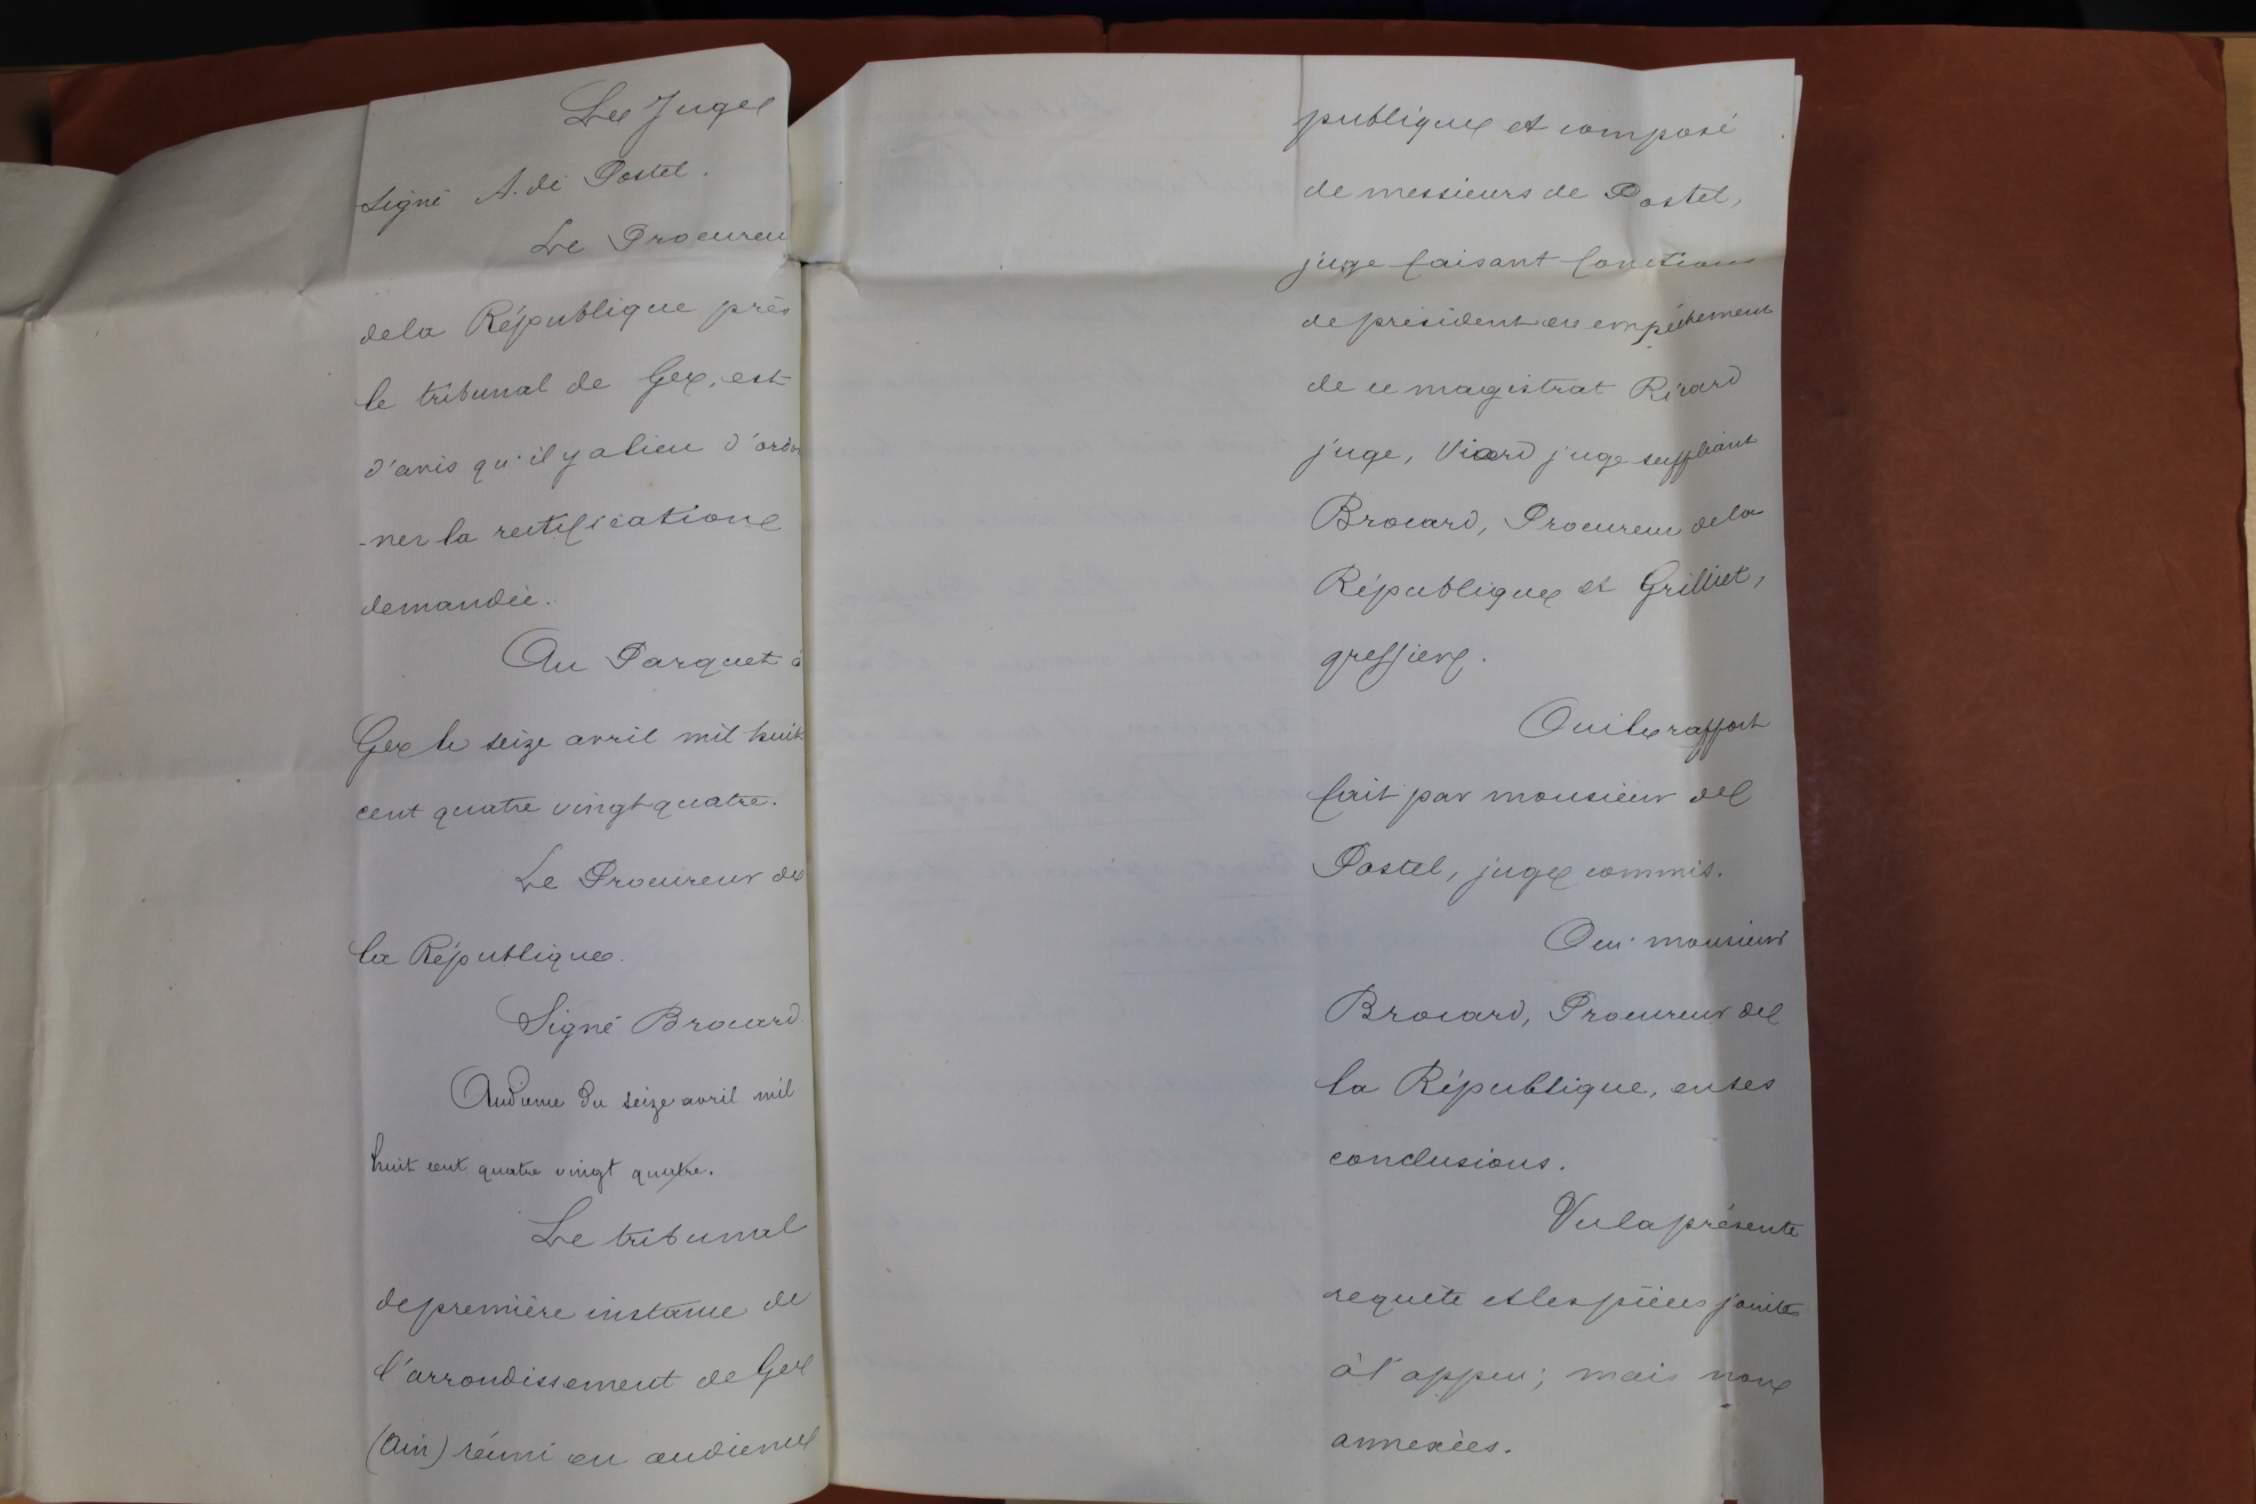 Le Juge
Signé A. de Postel.
Le Procureu
de la République près
le tribunal de Gex, est
d'avis qu'il y a lieu d'ordon
-ner la rectification
demandée.
Au Parquet à
Gex le seize avril mil huit
cent quatre vingt quatre.
Le Procureur de
la République.
Signé Brocard.
Audience du seize avril mil
huit cent quatre vingt quatre.
Le tribunal
de première instance de
l'arrondissement de Gex
(Ain) réuni en audience
publique et composé
de messieurs de Postel,
juge faisant fonctions
de président en empêchement
de ce magistrat
juge, Viard juge suppléant
Brocard, Procureur de la
République et Grilliet,
greffier.
Oui le rapport
fait par monsieur de
Postel, juge commis.
Oui monsieur
Brocard, Procureur de
la République, en ses
conclusions.
Vu la présente
requête et les pièces jointes
à l'appui; mais non
annexées.